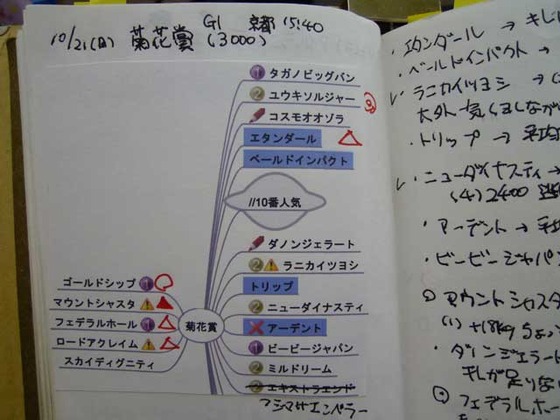 10/21(日) 菊花賞 GI 京都 15:40
(3000)
タガノビッグバン
ユウキソルジャー
コスモオオゾラ
エタンダール
ベールドインパクト
//10番人気
ダノンジェラート
ラニカイツヨシ
トリップ
ニューダイナスティ
アーデント
ビービージャパン
ミルドリーム
エキストラエンド
フジマサエンペラー
ゴールドシップ
マウントシャスタ
フェデラルホール
ロードアクレイム
スカイディグニティ
菊花賞
・エタンダール →
・ベールドインパクト →
ラニカイツヨシ →
大外一気
・トリップ →
・ニューダイナスティ →
(4) 2400
・アーデント →
・ビービージャパン
マウントシャスタ
(1) +18kg
・ダノンジェラート
フェデラルホー